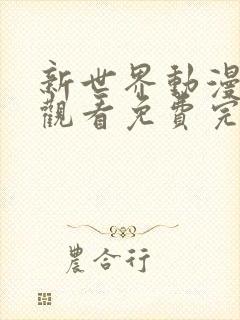 新世界動漫
觀看免費完
農合行